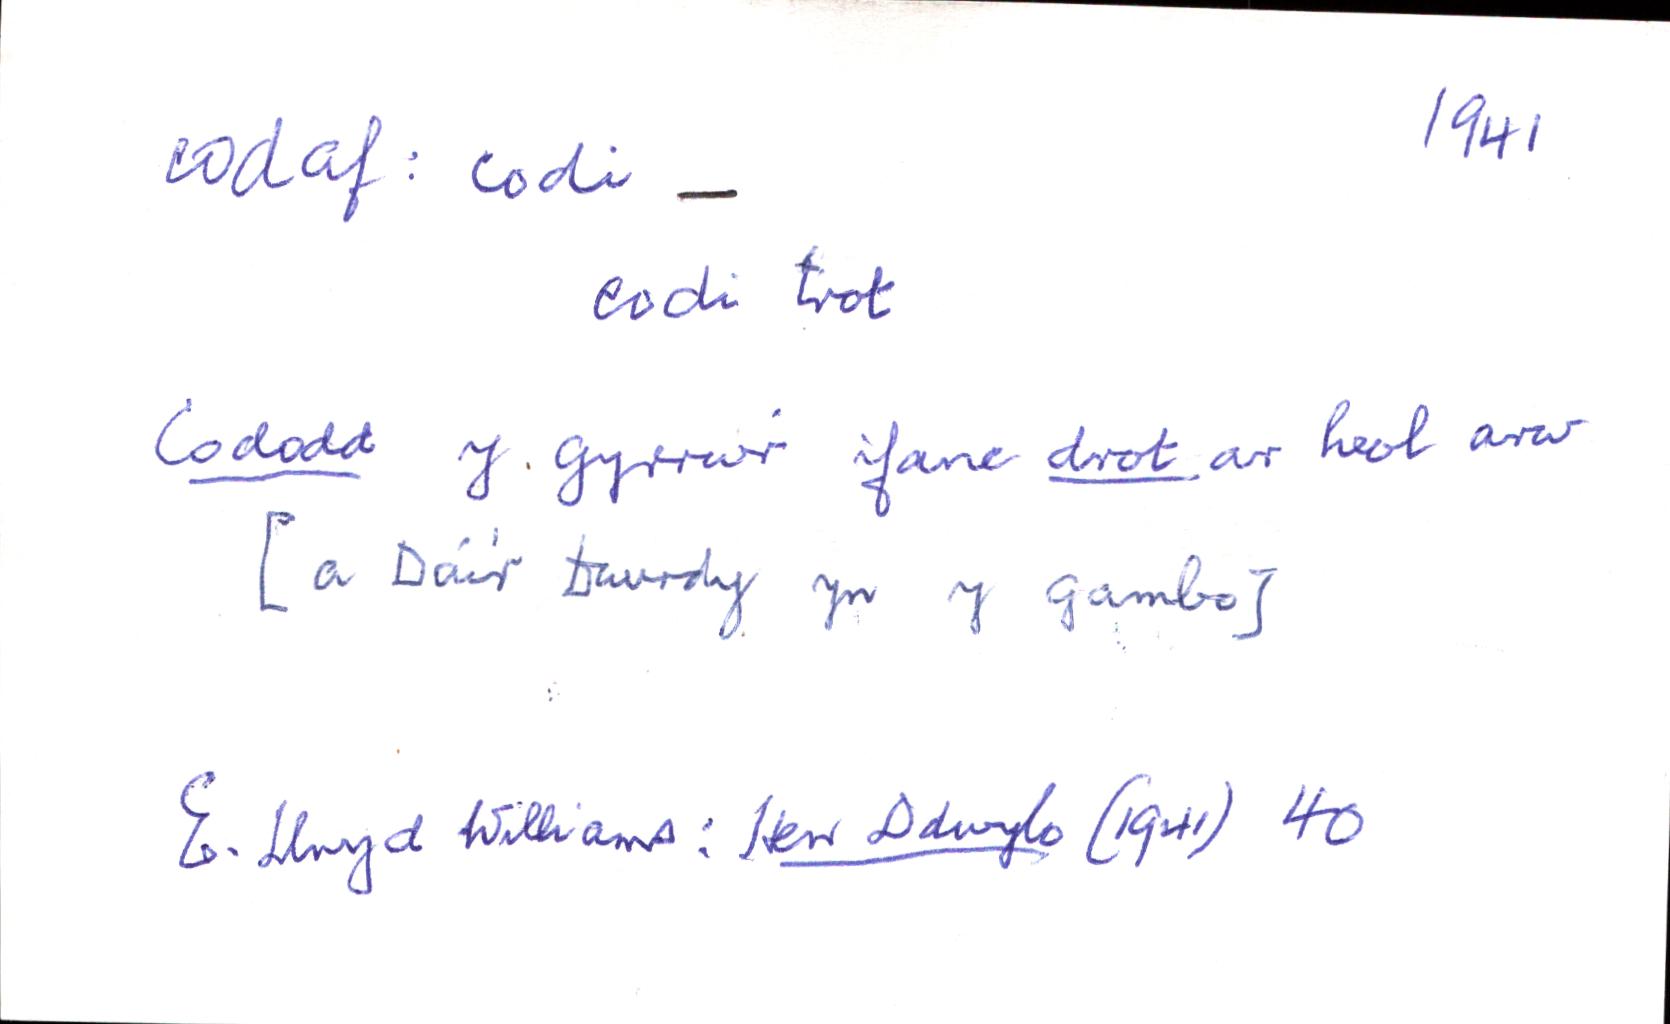 1941
codaf: codi —
codi trot
Cododd y gyrrwr ifanc drot ar heol arw
[a Dair Dwrdy yn y gambo]
E. Llwyd Williams: Hen Ddwylo (1941) 40